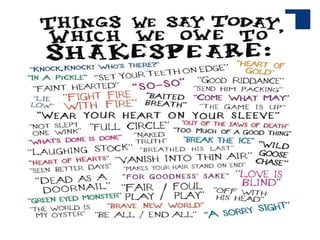 THINGS WE SAY TODAY,
WHICH WE OWE TO
SHAKESPEARE:
"KNOCK, KNOCK! WHO'S THERE?" "HEART OF GOLD"
"IN A PICKLE" "SET YOUR TEETH ON EDGE"
"FAINT HEARTED" "SO-SO" "GOOD RIDDANCE"
"SEND HIM PACKING"
"LIE LOW" "FIGHT FIRE WITH FIRE" "BAITED BREATH" "COME WHAT MAY"
"THE GAME IS UP"
"WEAR YOUR HEART ON YOUR SLEEVE"
"NOT SLEPT ONE WINK" "FULL CIRCLE" "OUT OF THE JAWS OF DEATH"
"TOO MUCH OF A GOOD THING"
"WHAT'S DONE IS DONE" "NAKED TRUTH" "BREAK THE ICE" "WILD GOOSE CHASE"
"LAUGHING STOCK" "BREATHED HIS LAST"
"HEART OF HEARTS" "VANISH INTO THIN AIR"
"SEEN BETTER DAYS" "MAKES YOUR HAIR STAND ON END"
"DEAD AS A DOORNAIL" "FOR GOODNESS' SAKE" "LOVE IS BLIND"
"GREEN EYED MONSTER" "FAIR PLAY / FOUL PLAY" "OFF WITH HIS HEAD"
"THE WORLD IS MY OYSTER" "BRAVE NEW WORLD"
"BE ALL / END ALL" "A SORRY SIGHT"